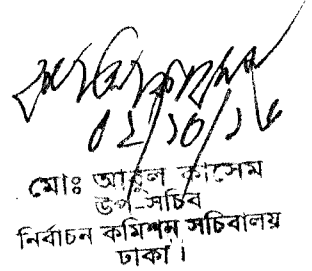 ০২/১০/১৮
মোঃ আবুল কাসেম
উপ-সচিব
নির্বাচন কমিশন সচিবালয়
ঢাকা।